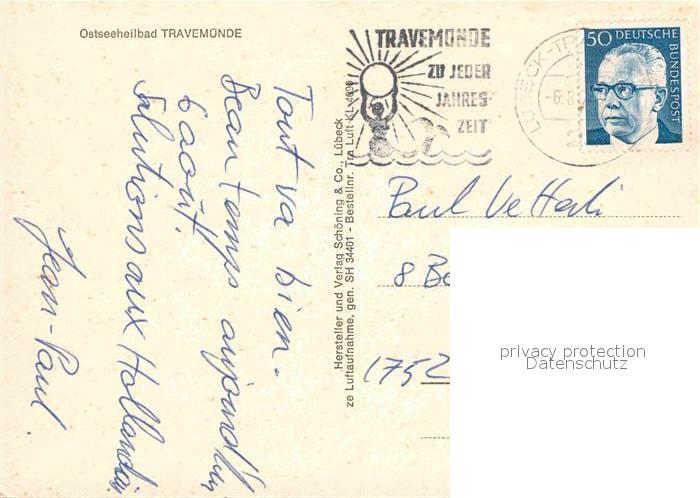 Ostseeheilbad TRAVEMÜNDE
TRAVEMÜNDE
ZU JEDER
JAHRES-
ZEIT
LÜBECK-TR
-6.8
50 DEUTSCHE
BUNDESPOST
Tout va bien.
Beau temps aujourd'hui
6 août!
Salutions aux Hollandais
Jean-Paul.
Hersteller und Verlag Schöning & Co., Lübeck
ze Luftaufnahme, gen. SH 34401 - Bestellnr. Tra Luft KL 4699
Paul
8 Be
1752
privacy protection
Datenschutz